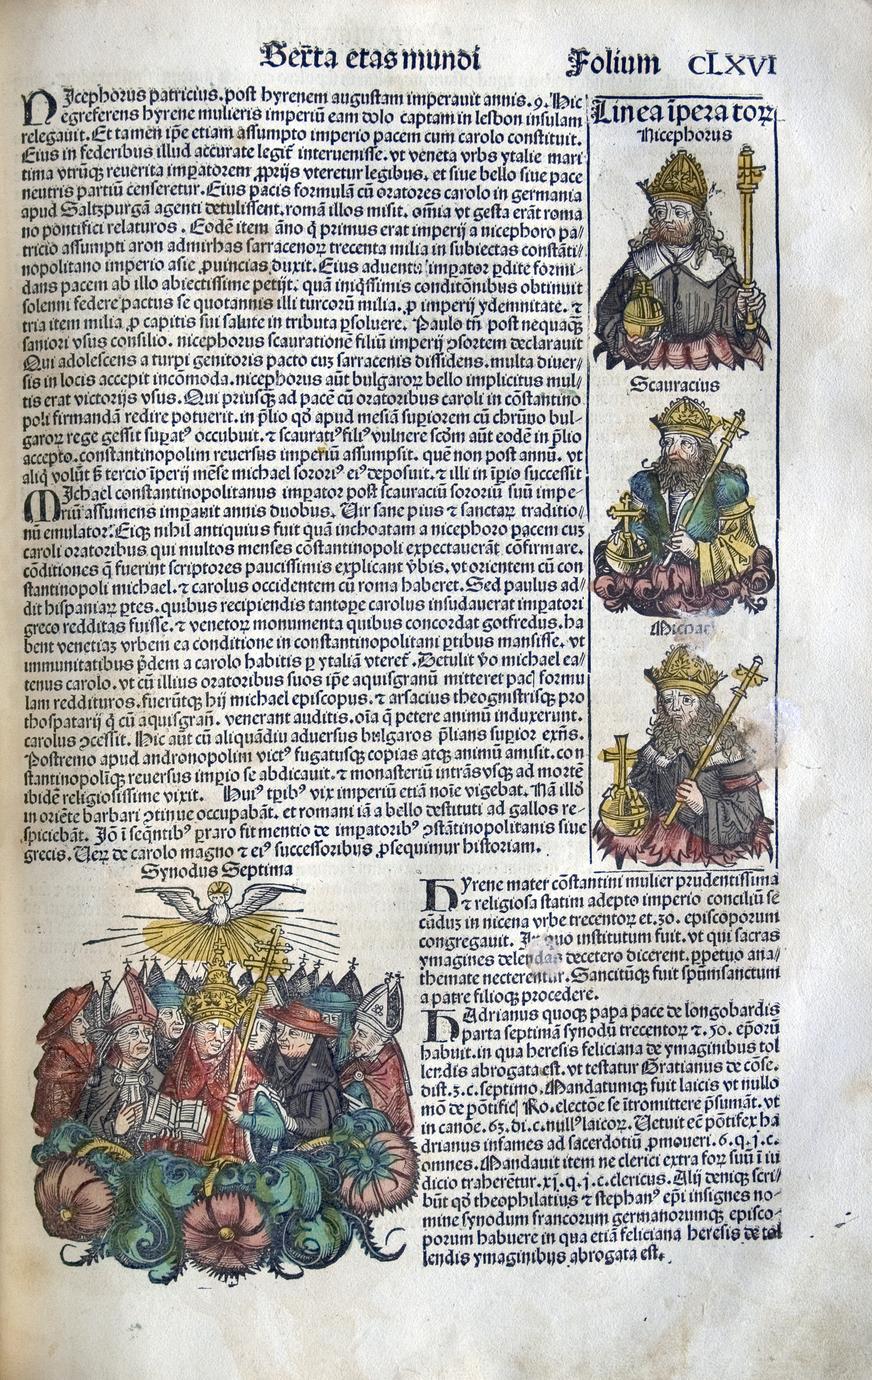 Sexta etas mundi
Folium CLXVI
NIcephorus patricius.post hyrenem augustam imperauit annis.9.Hic
egreferens hyrene mulieris imperiũ eam dolo captam in lesbon insulam
relegauit.Et tamen ip̃e etiam assumpto imperio pacem cum carolo constituit.
Eius in federibus illud accurate legit̃ interuenisse.vt veneta vrbs ytalie mari
tima vtrũq̃ reuerita imp̃atorem ꝓprijs vteretur legibus.et siue bello siue pace
neutris partiũ censeretur.Eius pacis formulã cũ oratores carolo in germania
apud Saltzpurgã agenti detulissent.romã illos misit.om̃ia vt gesta erãt roma
no pontifici relaturos.Eodẽ item ãno q̃ primus erat imperij a nicephoro pa//
tricio assumpti aron admirhas sarracenoꝝ trecenta milia in subiectas constãti//
nopolitano imperio asie ꝓuincias duxit.Eius aduentu imp̃ator p̃dite formi-
dans pacem ab illo abiectissime petijt.quã iniq̃ssimis conditõnibus obtinuit
solenni federe pactus se quotannis illi turcorũ milia.ꝓ imperij ydemnitate.⁊
tria item milia.ꝓ capitis sui salute in tributa p̱soluere.Paulo tñ post nequaq̃ꝫ
saniori vsus consilio.nicephorus scaurationẽ filiũ imperij ↄsortem declarauit
Qui adolescens a turpi genitoris pacto cuꝫ sarracenis dissidens.multa diuer//
sis in locis accepit incõmoda.nicephorus aũt bulgaroꝝ bello implicitus mul//
tis erat victorijs vsus.Qui priusq̃ꝫ ad pacẽ cũ oratoribus caroli in cõstantino
poli firmandã redire potuerit.in p̃lio qð apud mesiã sup̱iorem cũ chrũno bul-
garoꝝ rege gessit sup̱atꝰ occubuit.⁊ scauratiꝰ filiꝰ vulnere scðm aũt eodẽ in p̃lio
accepto.constantinopolim reuersus imperiũ assumpsit.quẽ non post annũ.vt
aliq̃ volũt ß tercio ĩperij mẽse michael sororiꝰ eiꝰ deposuit.⁊ illi in ĩp̱io successit
MIchael constantinopolitanus imp̱ator post scauraciũ sororiũ suũ impe-
riũ assumens imp̱auit annis duobus.Vir sane pius ⁊ sanctaꝝ traditio//
nũ emulator.Eiq̃ꝫ nihil antiquius fuit quã inchoatam a nicephoro pacem cuꝫ
caroli oratoribus qui multos menses cõstantinopoli expectauerãt cõfirmare.
cõditiones q̃ fuerint scriptores paucissimis explicant ṽbis.vt orientem cũ con
stantinopoli michael.⁊ carolus occidentem cũ roma haberet.Sed paulus ad//
dit hispaniaꝝ p̱tes.quibus recipiendis tantop̱e carolus insudauerat imp̱atori
greco redditas fuisse.⁊ venetoꝝ monumenta quibus concordat gotfredus.ha
bent venetiaꝫ vrbem ea conditione in constantinopolitani p̱tibus mansisse.vt
immunitatibus p̃dem a carolo habitis p̱ ytaliã vteret̃.Detulit ṽo michael ea//
tenus carolo.vt cũ illius oratoribus suos ip̃e aquisgranũ mitteret pac̨ formu
lam reddituros.fuerũtq̃ꝫ hij michael episcopus.⁊ arsacius theognistrisq̃ꝫ pro
thospatarij q̃ cũ aquisgranũ.venerant auditis.oĩa q̃ petere animũ induxerunt.
carolus ↄcessit.Hic aũt cũ aliquãdiu aduersus bulgaros p̃lians sup̱ior exñs.
Postremo apud andronopolim victꝰ fugatusq̃ꝫ copias atq̃ꝫ animũ amisit.con
stantinopolĩq̃ꝫ reuersus imp̱io se abdicauit.⁊ monasteriũ intrãs vsq̃ꝫ ad mortẽ
ibidẽ religiosissime vixit. Huiꝰ tp̃ibꝰ vix imperiũ etiã noĩe vigebat.Nã illð
in oriẽte barbari ↄtinue occupabãt.et romani iã a bello destituti ad gallos re-
spiciebãt. Jðo ĩ seq̃ntibꝰ p̱raro fit mentio de imp̱atoribꝰ ↄstãtinopolitanis siue
grecis.Veꝝ de carolo magno ⁊ eiꝰ successoribus ꝓsequimur historiam.
Linea ĩpera toꝝ
Nicephorus
Scauracius
Michael
Synodus Septima
HYrene mater cõstantini mulier prudentissima
⁊ religiosa statim adepto imperio conciliũ se
cũduꝫ in nicena vrbe trecentoꝝ et.30. episcoporum
congregauit. In quo institutum fuit.vt qui sacras
ymagines delendas decetero dicerent.p̱petuo ana//
themate necterentur.Sancitũq̃ꝫ fuit sp̃umsanctum
a patre filioq̃ꝫ procedere.
HAdrianus quoq̃ꝫ papa pace de longobardis
parta septimã synodũ trecentoꝝ ⁊.50. ep̃orũ
habuit.in qua heresis feliciana de ymaginibus tol
lendis abrogata est.vt testatur Gratianus de cõse.
dist.3.c.septimo.Mandatumq̃ꝫ fuit laicis vt nullo
mõ de põtific̨ Ro.electõe se ĩtromittere p̃sumãt.vt
in canõe.63.di.c.nullꝰ laicoꝝ.Uetuit eẽ põtifex ha
drianus infames ad sacerdotiũ ꝓmoueri.6.q.j.c.
omnes.Mandauit item ne clerici extra foꝝ suũ ĩ iu
dicio traherẽtur.xj.q.j.c.clericus.Alij deniq̃ꝫ scri//
bũt qð theophilatius ⁊ stephanꝰ ep̃i insignes no-
mine synodum francorum germanorumq̃ꝫ episco-
porum habuere in qua etiã feliciana heresis de tol
lendis ymaginibus abrogata est.